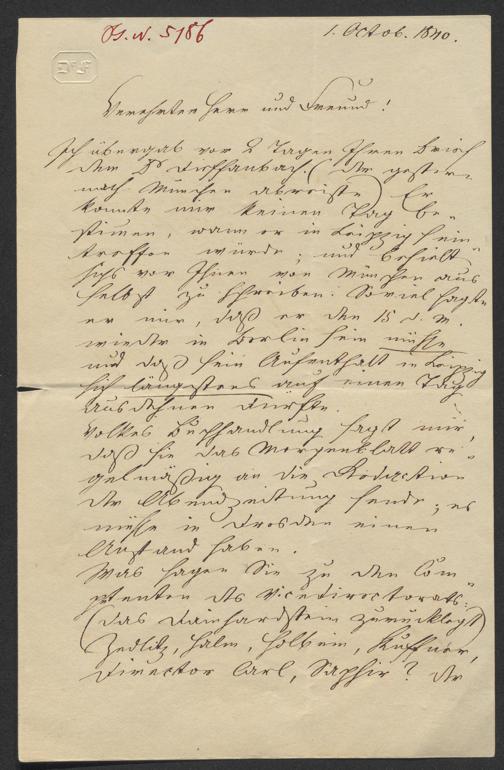 Os. N. 5186
1. Octob. 1840.
D F
Verehrter Herr und Freund!
Ich übergab vor 2 Tagen Ihren Brief
dem Dr Dieffenbach. (der gestern
nach München abreiste) Er
konnte mir keinen Tag be-
stimen, wann er in Leipzig ein-
treffen würde; und behielt
sich vor Ihnen von München aus
selbst zu schreiben. Soviel sagte
er mir, daß er den 15 d. M.
wieder in Berlin sein müsse
und daß sein Aufenthalt in Leipzig
sich längstens auf einen Tag
ausdehnen dürfte.
Volkes Buchhandlung sagt mir,
daß sie das Morgenblatt re-
gelmäßig an die Redaction
der Abendzeitung sende, es
müsse in Dresden einen
Anstand haben.
Was sagen Sie zu den Com-
petenten des Vicedirectorats:
(das Deinhardstein zurücklegt)
Zedlitz, Halm, Holbein, Kuffner,
Director Carl, Saphir? Der